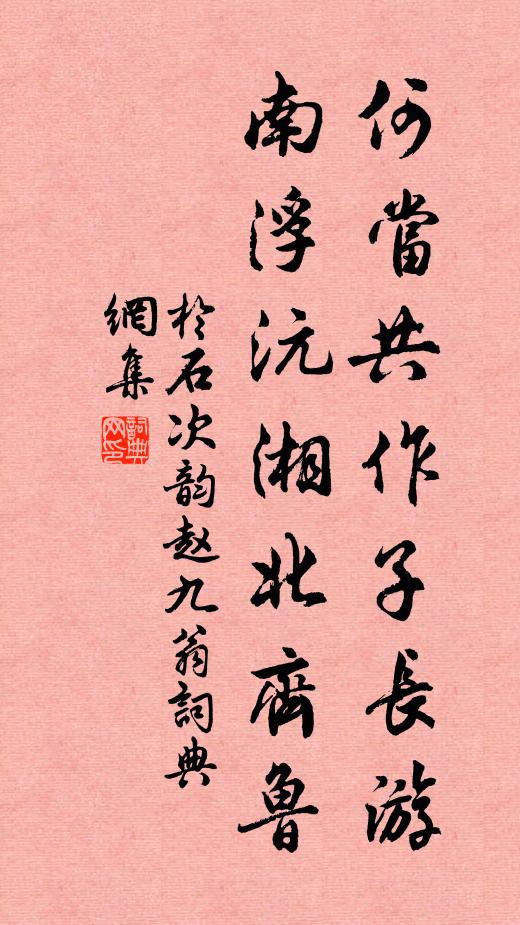 何當共作子長游
南浮沅湘北齊魯
於石次韵赵九翁詞典
網集
詞典網印